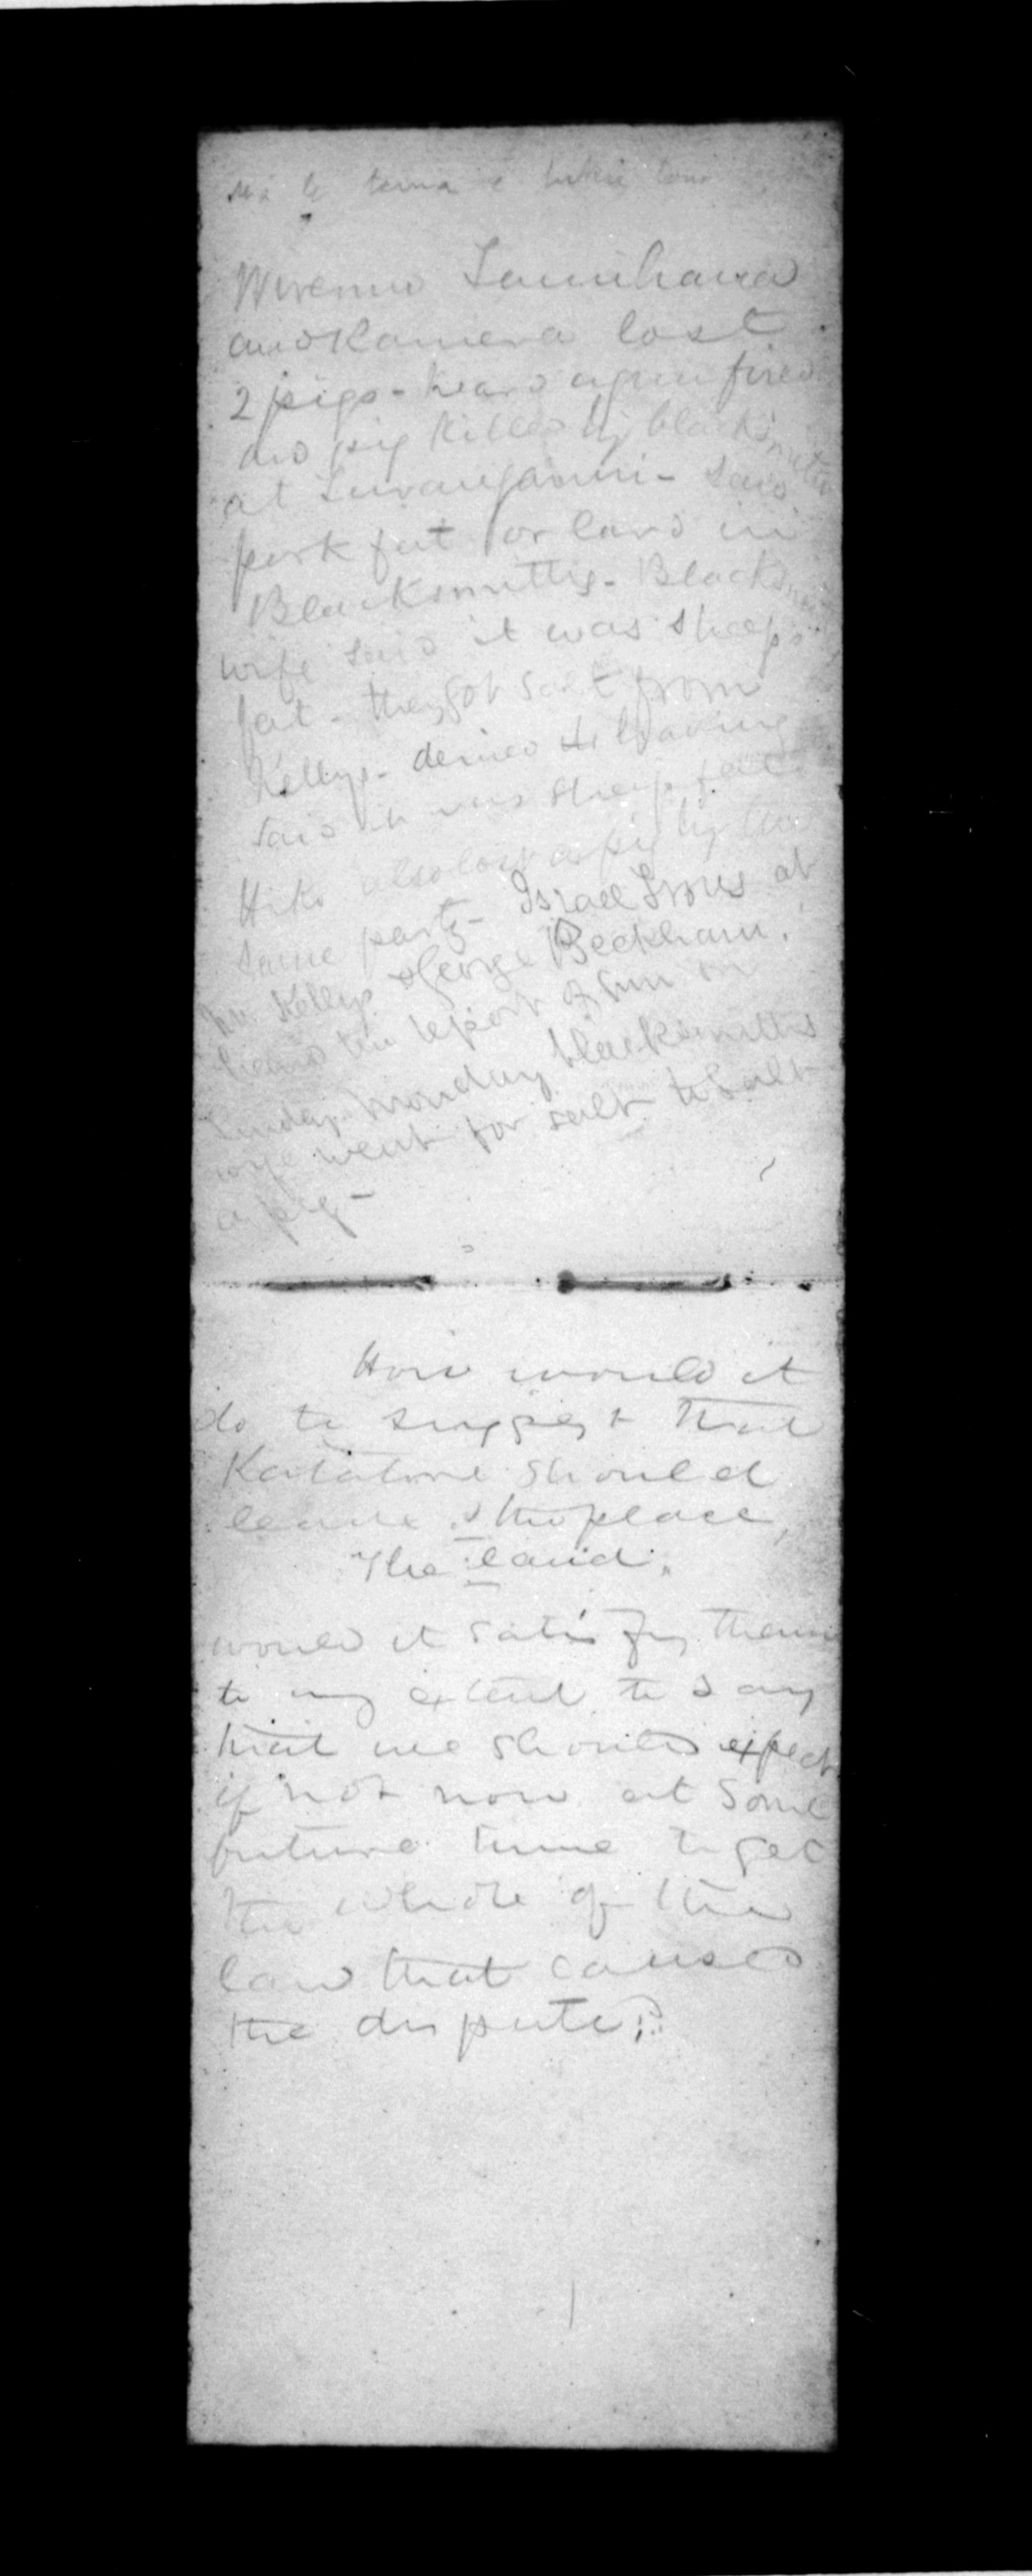 Wiremu Tamihana
and Kamera lost
2 pigs - heard a gun fired
and pig killed by blacksmith
at - said
pork fat or lard in
Blacksmiths - Blacksmiths
wife said it was sheeps
fat - they got salt from
Kellys - denied having
said it was sheeps fat
Hiko also lost a pig by the
same party - Israel at
Mr Kellys & George Beckham.
heard the report of gun on
Sunday. Monday blacksmiths
wife went for salt to salt
a pig -
How would it
do to suggest that
Katatore should
leave the place,
The land.
would it satisfy them
to any extent to say
that we should expect
if not now at some
future time to get
the whole of the
land that caused
the dispute?